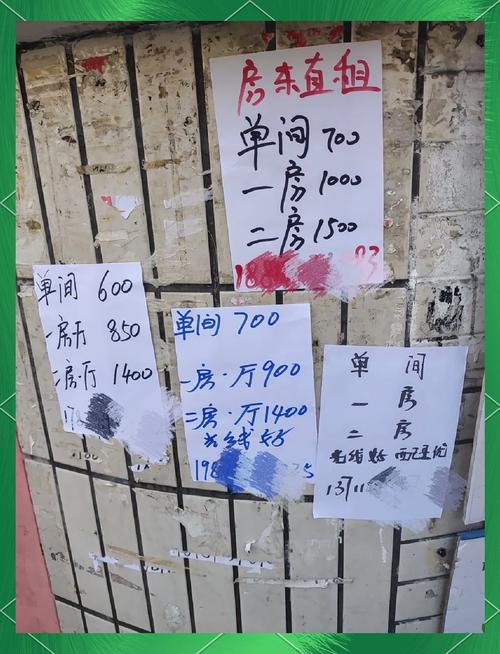 房东直租
单间 700
一房 1000
二房 1500
188
93
单间 600
一房厅 850
二房.厅 1400
17
单间 700
一房.厅 900
二房.厅 1400
光线好
198
5
单间
一房
二房
光线好
1371